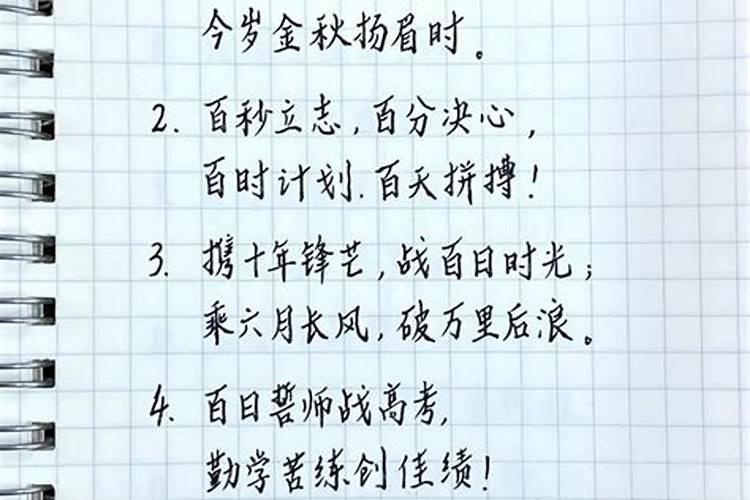 今岁金秋扬眉时。
2. 百秒立志,百分决心,
百时计划.百天拼搏!
3. 携十年锋芒,战百日时光;
乘六月长风,破万里后浪。
4. 百日誓师战高考,
勤学苦练创佳绩!